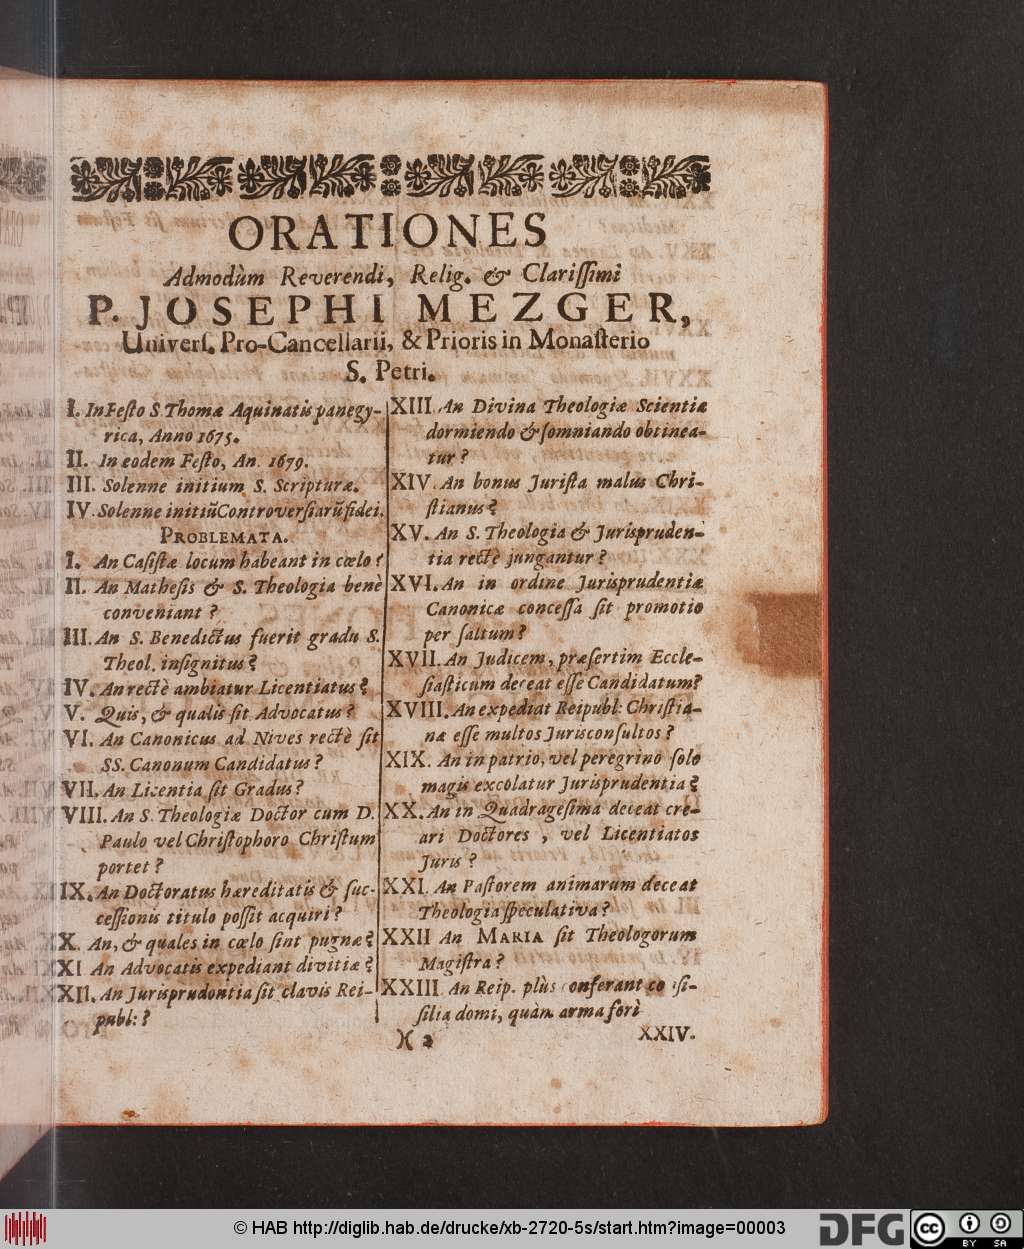 ORATIONES
Admodùm Reverendi, Relig. & Clarissimi
P. JOSEPHI MEZGER,
Univers. Pro-Cancellarii, & Prioris in Monasterio
S. Petri.
I. In Festo S. Thomæ Aquinatis panegy-
rica, Anno 1675.
II. In eodem Festo, An. 1679.
III. Solenne initium S. Scripturæ.
IV. Solenne initiũ Controversiarũ fidei.
PROBLEMATA.
I. An Casistæ locum habeant in cœlo?
II. An Mathesis & S. Theologia benè
conveniant?
III. An S. Benedictus fuerit gradu S.
Theol. insignitus?
IV. An rectè ambiatur Licentiatus?
V. Quis, & qualis sit Advocatus?
VI. An Canonicus ad Nives rectè sit
SS. Canonum Candidatus?
VII. An Licentia sit Gradus?
VIII. An S. Theologiæ Doctor cum D.
Paulo vel Christophoro Christum
portet?
IX. An Doctoratus hæreditatis & suc-
cessionis titulo possit acquiri?
X. An, & quales in cœlo sint pugnæ?
XI An Advocatis expediant divitiæ?
XII. An Jurisprudontia sit clavis Rei-
publ:?
XIII. An Divina Theologiæ Scientia
dormiendo & somniando obtinea-
tur?
XIV. An bonus Jurista malus Chri-
stianus?
XV. An S. Theologia & Jurispruden-
tia rectè jungantur?
XVI. An in ordine Jurisprudentiæ
Canonicæ concessa sit promotio
per saltum?
XVII. An Judicem, præsertim Eccle-
siasticum deceat esse Candidatum?
XVIII. An expediat Reipubl: Christia-
næ esse multos Jurisconsultos?
XIX. An in patrio, vel peregrino solo
magis excolatur Jurisprudentia?
XX. An in Quadragesima deceat cre-
ari Doctores, vel Licentiatos
Juris?
XXI. An Pastorem animarum deceat
Theologia speculativa?
XXII An MARIA sit Theologorum
Magistra?
XXIII. An Reip. plùs conferant co si-
silia domi, quàm arma forì
)( 2
XXIV.
© HAB http://diglib.hab.de/drucke/xb-2720-5s/start.htm?image=00003
DFG
cc
BY SA